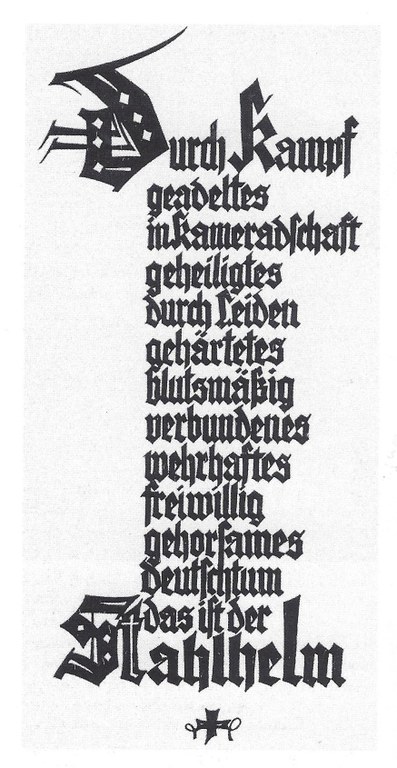 Durch Kampf
geadeltes
in Kameradschaft
geheiligtes
durch Leiden
gehärtetes
blutsmäßig
verbundenes
wehrhaftes
freiwillig
gehorsames
Deutschtum
das ist der
Stahlhelm